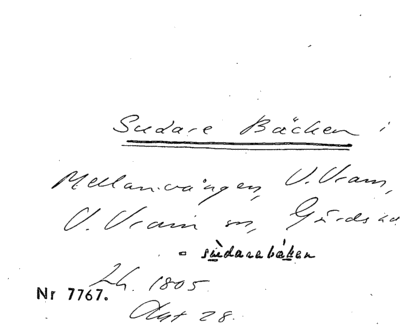 Sudare Bäcken i
Mellanvången, V. Vram,
V. Vram sn, Gärds hd
sùdarebǻken
Lh. 1805
Nr 7767.
Akt 28